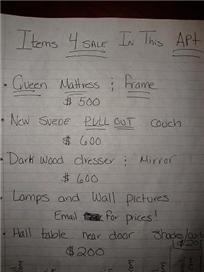 Items 4 SALE In This APT.
• Queen Mattress ; Frame
$ 500
• New SUEDE PULL OUT couch
$ 600
• Dark Wood dresser ; Mirror
$ 600
• Lamps and Wall pictures
Email for prices!
• Hall table near door
$ 200